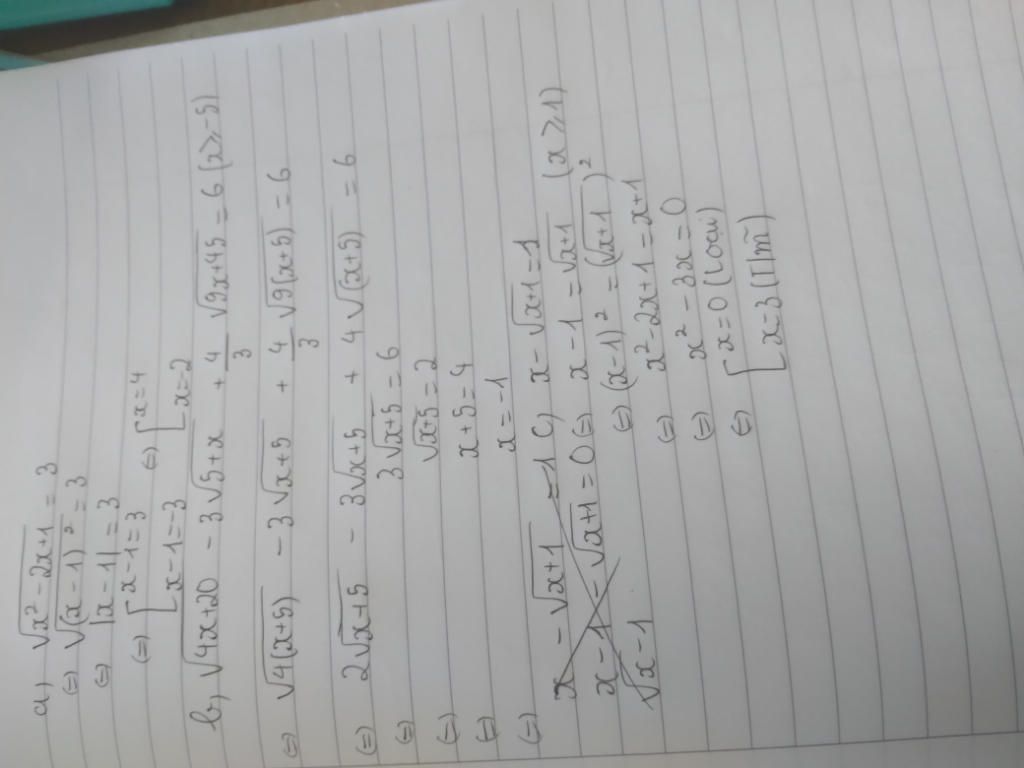 a) √(x² - 2x + 1) = 3
(=) √(x - 1)² = 3
(=) |x - 1| = 3
(=) [ x - 1 = 3 (=) [ x = 4
[ x - 1 = -3 [ x = -2
b, √(4x+20) - 3√(5+x) + 4/3 √(9x+45) = 6 (x ≥ -5)
(=) √(4(x+5)) - 3√(x+5) + 4/3 √(9(x+5)) = 6
(=) 2√(x+5) - 3√(x+5) + 4√((x+5)) = 6
(=) 3√(x+5) = 6
(=) √(x+5) = 2
(=) x + 5 = 4
(=) x = -1
x - √(x+1) = 1 c, x - √(x+1) = 1 (x ≥ 1)
x - 1 - √(x+1) = 0 (=) x - 1 = √(x+1)
√x - 1 (=) (x - 1)² = (√(x+1))²
(=) x² - 2x + 1 = x + 1
(=) x² - 3x = 0
(=) [ x = 0 (Loại)
[ x = 3 (Tm)